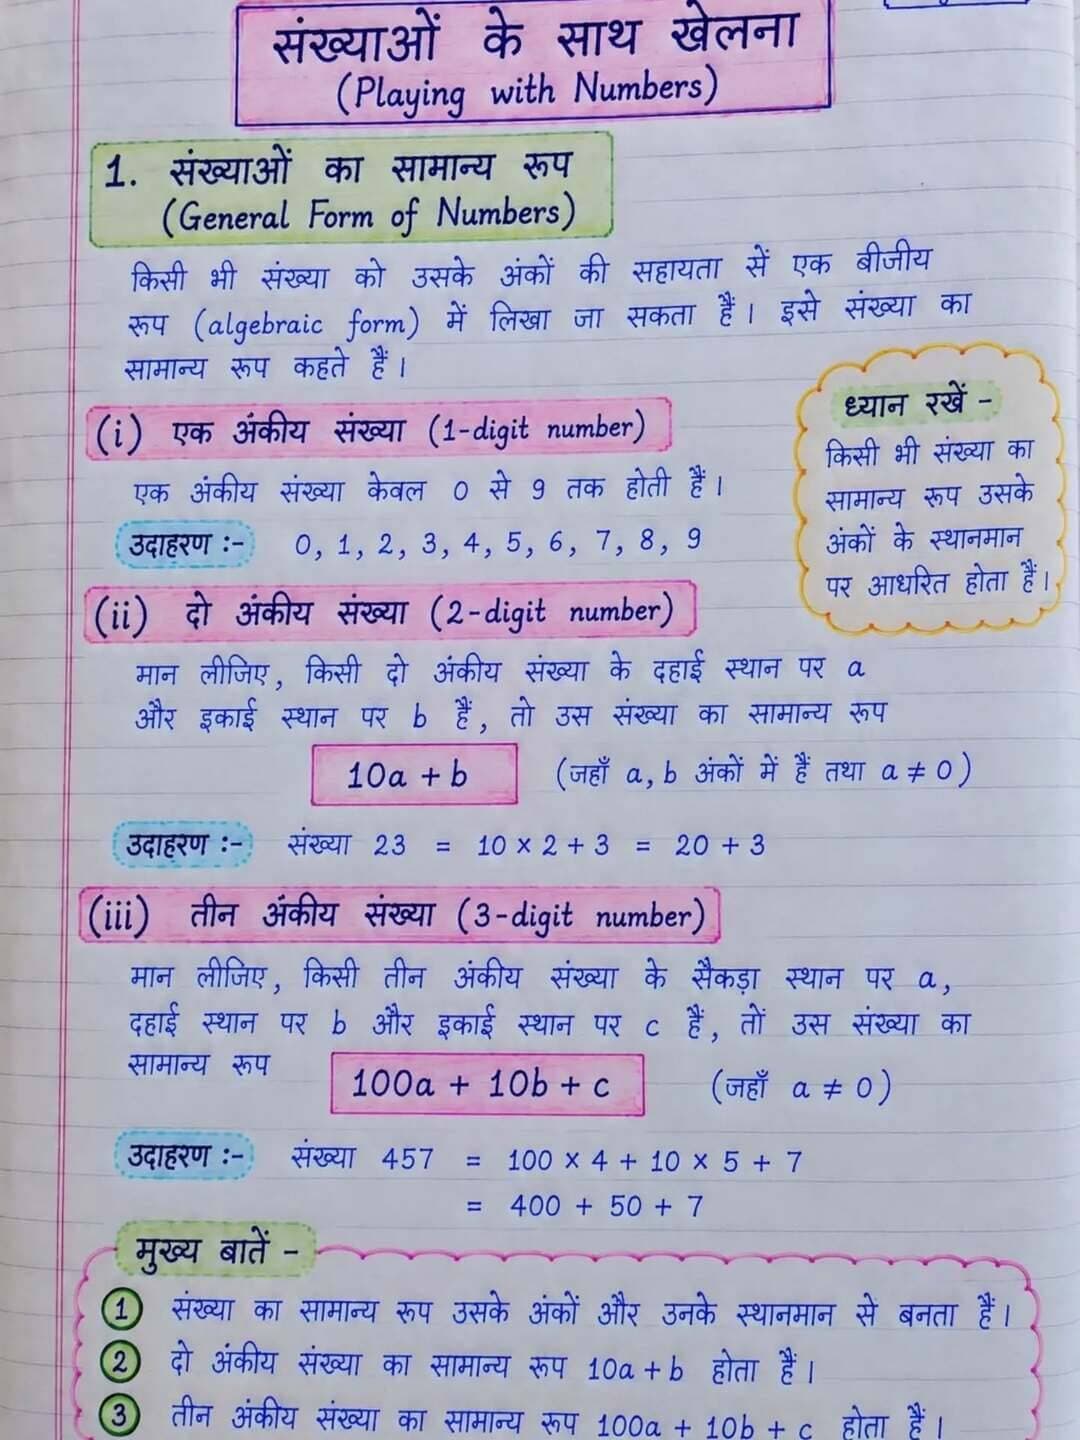 संख्याओं के साथ खेलना
(Playing with Numbers)
1. संख्याओं का सामान्य रूप
(General Form of Numbers)
किसी भी संख्या को उसके अंकों की सहायता सें एक बीजीय
रूप (algebraic form) में लिखा जा सकता हैं। इसे संख्या का
सामान्य रूप कहते हैं।
(i) एक अंकीय संख्या (1-digit number)
एक अंकीय संख्या केवल 0 से 9 तक होती हैं।
उदाहरण :- 0, 1, 2, 3, 4, 5, 6, 7, 8, 9
ध्यान रखें -
किसी भी संख्या का
सामान्य रूप उसके
अंकों के स्थानमान
पर आधरित होता हैं।
(ii) दो अंकीय संख्या (2-digit number)
मान लीजिए, किसी दो अंकीय संख्या के दहाई स्थान पर a
और इकाई स्थान पर b हैं, तो उस संख्या का सामान्य रूप
10a + b (जहाँ a, b अंकों में हैं तथा a ≠ 0)
उदाहरण :- संख्या 23 = 10 × 2 + 3 = 20 + 3
(iii) तीन अंकीय संख्या (3-digit number)
मान लीजिए, किसी तीन अंकीय संख्या के सैकड़ा स्थान पर a,
दहाई स्थान पर b और इकाई स्थान पर c हैं, तों उस संख्या का
सामान्य रूप 100a + 10b + c (जहाँ a ≠ 0)
उदाहरण :- संख्या 457 = 100 × 4 + 10 × 5 + 7
= 400 + 50 + 7
मुख्य बातें -
1 संख्या का सामान्य रूप उसके अंकों और उनके स्थानमान सें बनता हैं।
2 दो अंकीय संख्या का सामान्य रूप 10a + b होता हैं।
3 तीन अंकीय संख्या का सामान्य रूप 100a + 10b + c होता हैं।